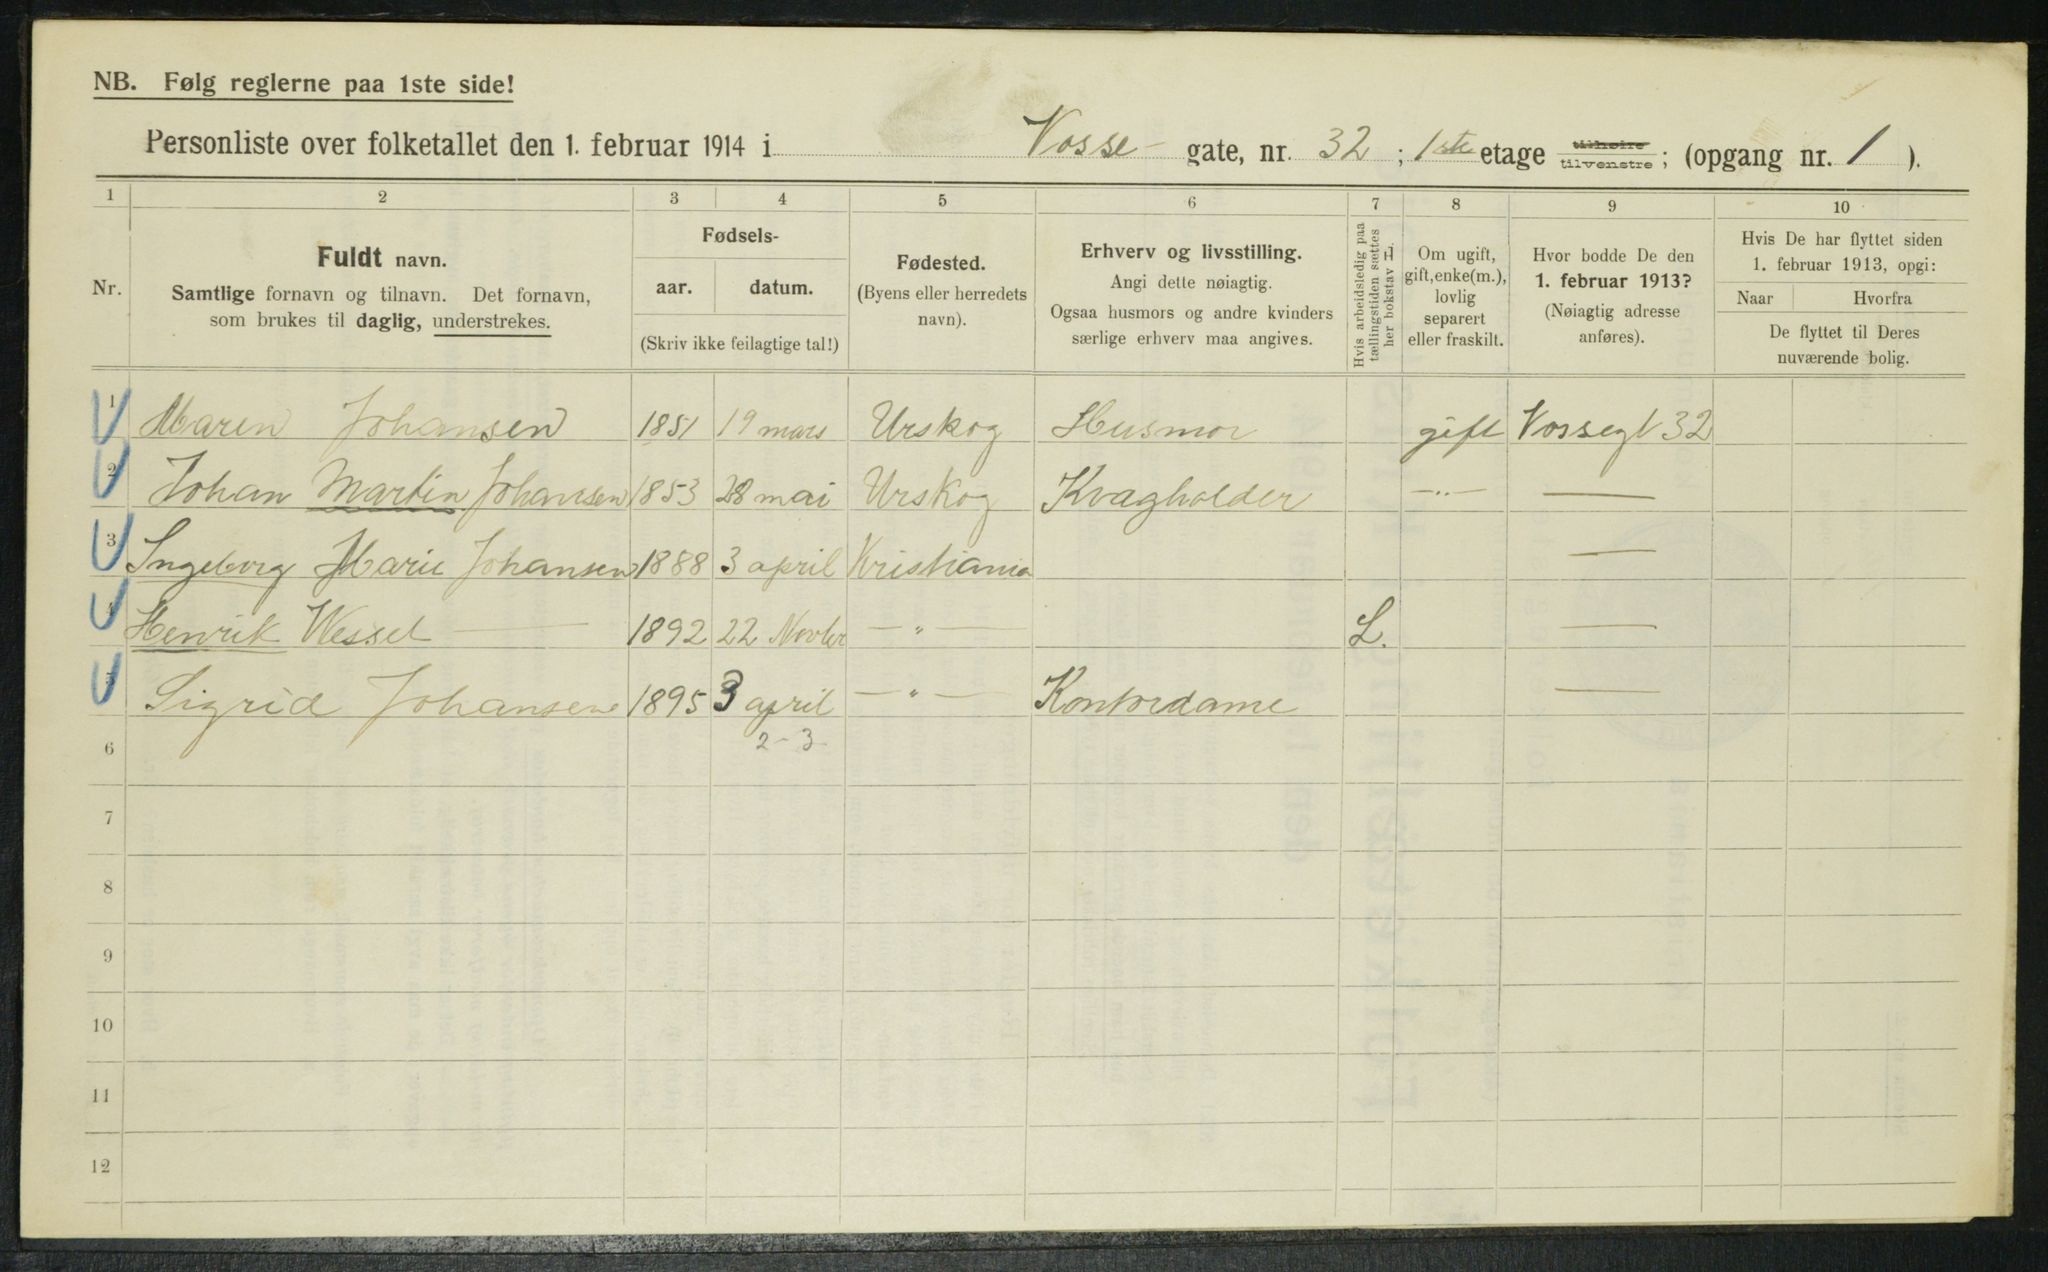 NB. Følg reglerne paa 1ste side!
Personliste over folketallet den 1. februar 1914 i Vosse- gate, nr. 32 ; 1ste etage tilhøire tilvenstre ; (opgang nr. 1 ).
1 2 3 4 5 6 7 8 9 10
Nr.
Fuldt navn.
Samtlige fornavn og tilnavn. Det fornavn,
som brukes til daglig, understrekes.
Fødsels-
aar. datum.
(Skriv ikke feilagtige tal!)
Fødested.
(Byens eller herredets
navn).
Erhverv og livsstilling.
Angi dette nøiagtig.
Ogsaa husmors og andre kvinders
særlige erhverv maa angives.
Hvis arbeidsledig paa
tællingstiden sættes
her bokstav L
Om ugift,
gift, enke(m.),
lovlig
separert
eller fraskilt.
Hvor bodde De den
1. februar 1913?
(Nøiagtig adresse
anføres).
Hvis De har flyttet siden
1. februar 1913, opgi:
Naar Hvorfra
De flyttet til Deres
nuværende bolig.
1 Maren Johansen 1851 19 mars Urskog Husmor gift Vossegt 32
2 Johan Martin Johansen 1853 28 mai Urskog Kvægholder —"— —
3 Ingeborg Marie Johansen 1888 3 april Kristiania —
4 Henrik Wessel — 1892 22 Novber —"— L. —
5 Sigrid Johansen 1895 3 april —"— Kontordame —
2-3
6
7
8
9
10
11
12